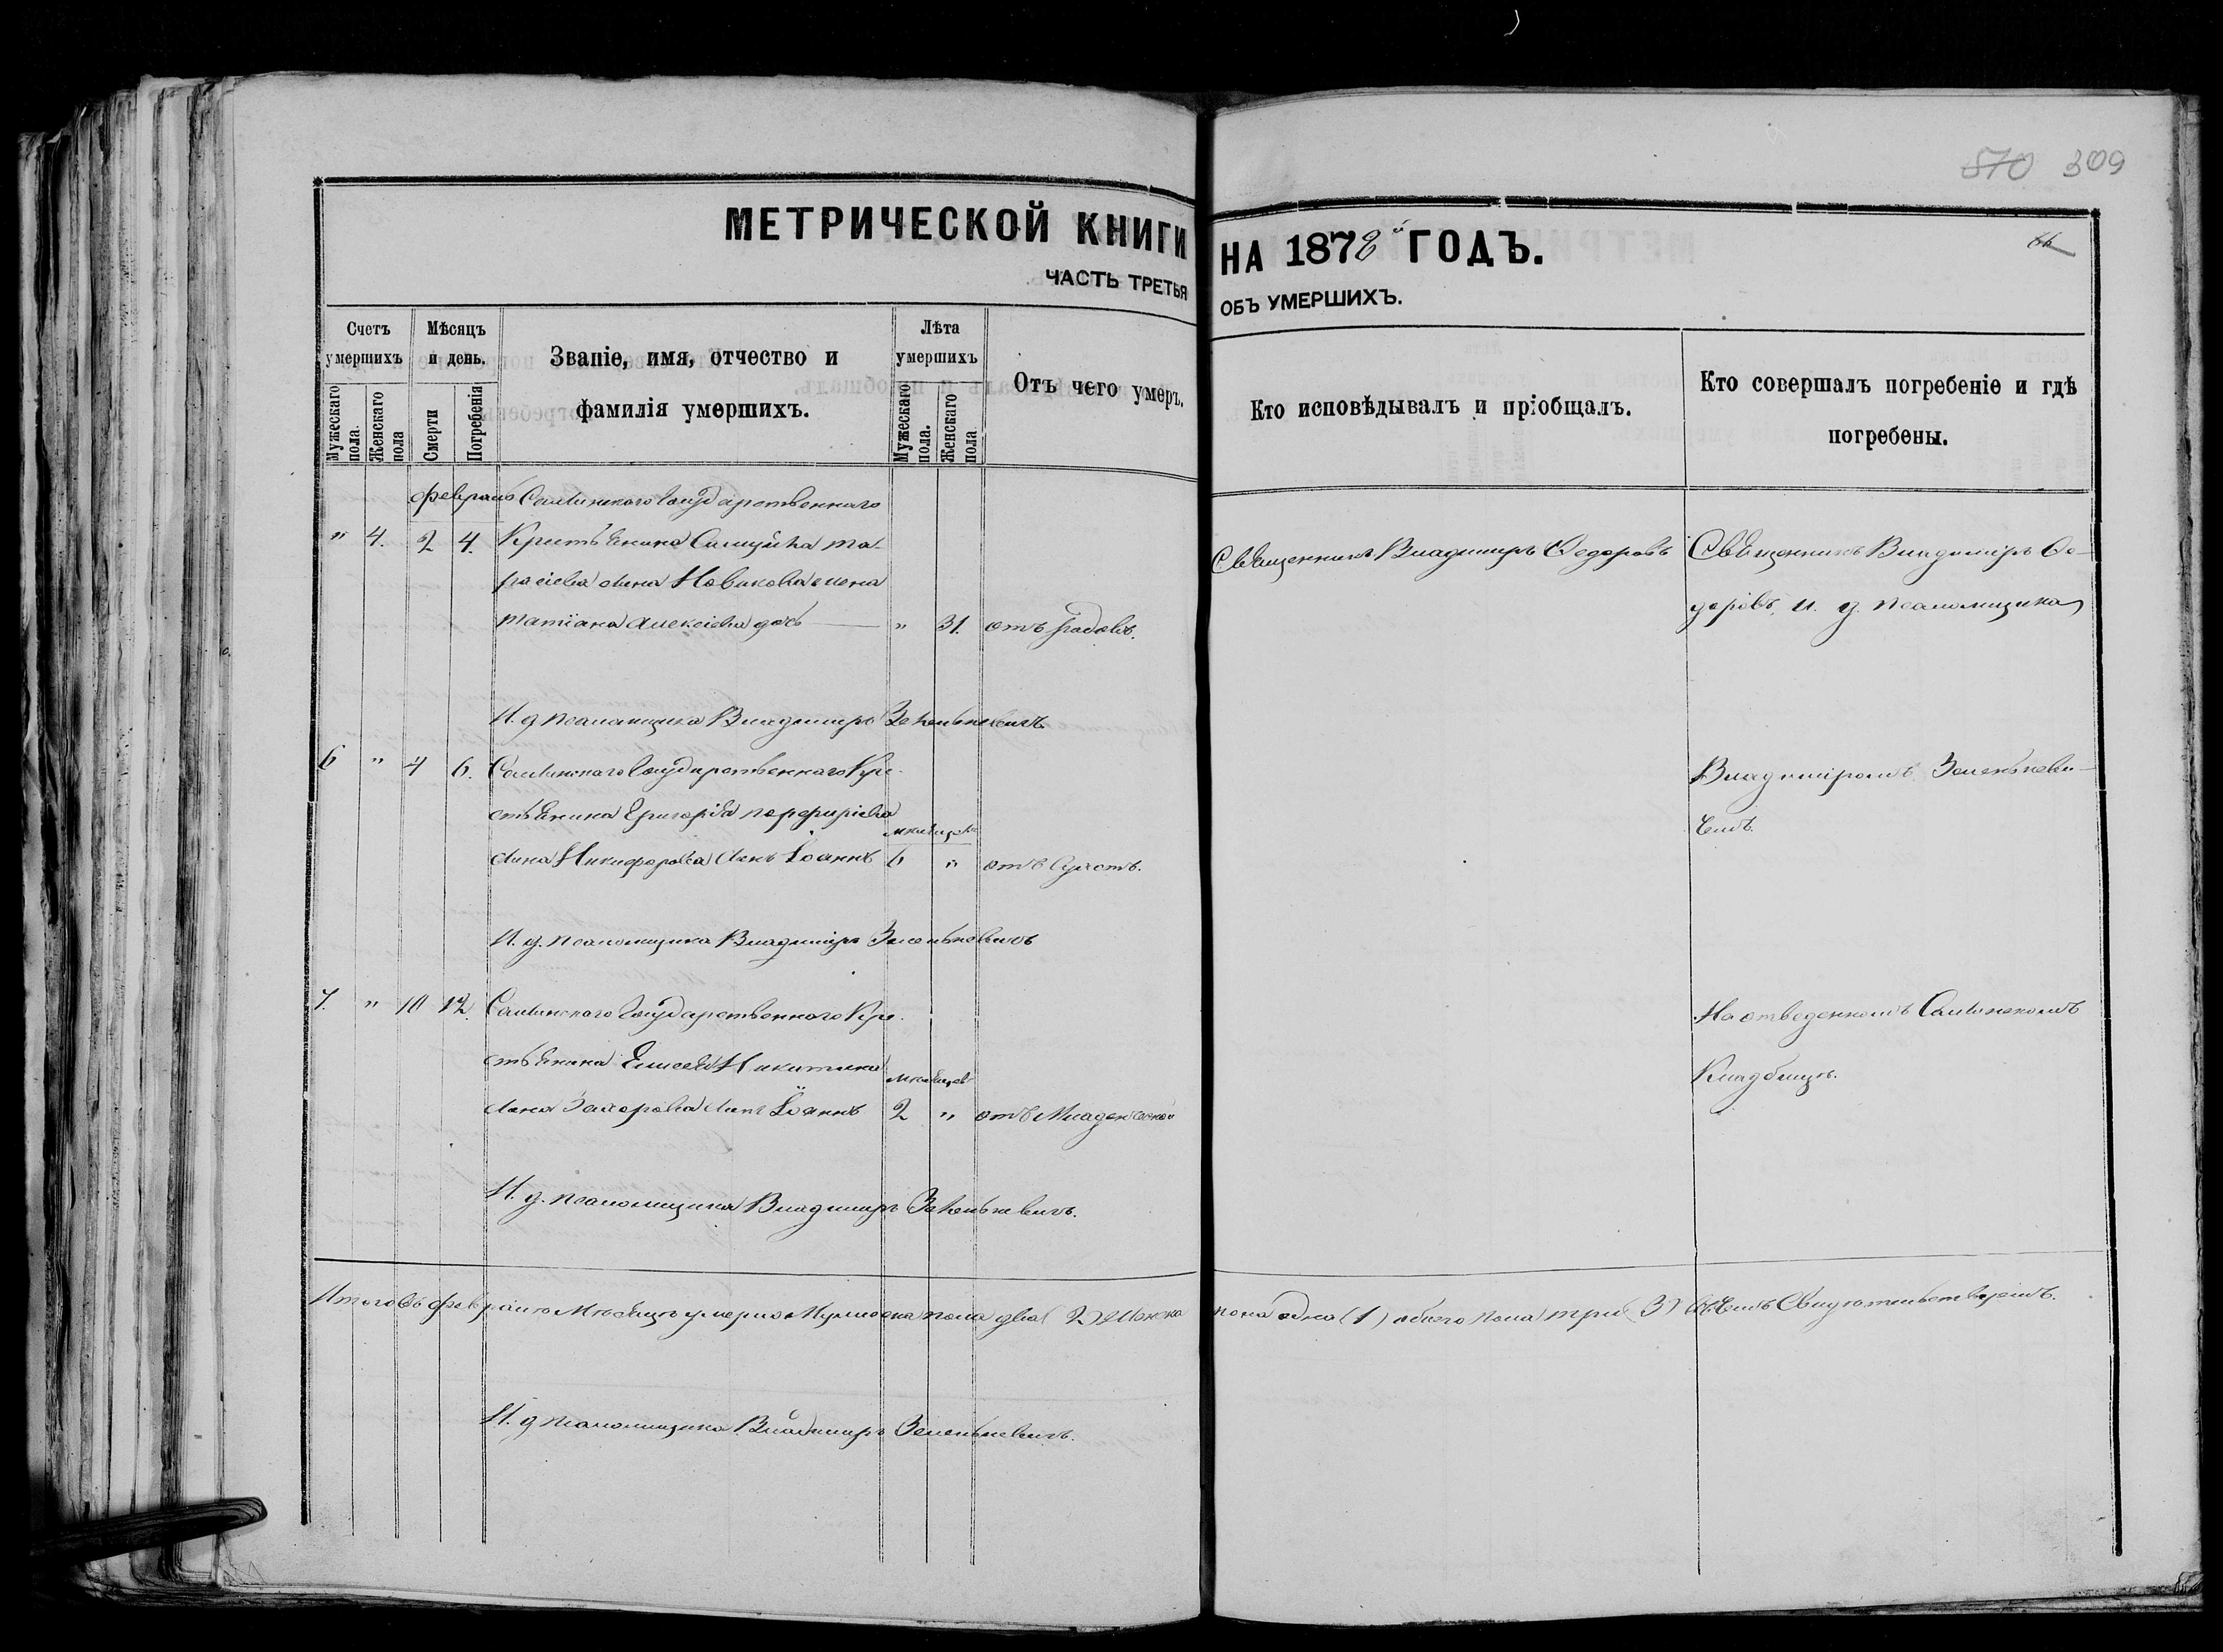 570 309
МЕТРИЧЕСКОЙ КНИГИ НА 1878й ГОДЪ.
ЧАСТЬ ТРЕТЬЯ ОБЪ УМЕРШИХЪ.
Счетъ умершихъ
Мужескаго пола.
Женскаго пола
Мѣсяцъ и день.
Смерти
Погребенія
Званіе, имя, отчество и фамилія умершихъ.
Лѣта умершихъ
Мужескаго пола.
Женскаго пола
Отъ чего умеръ.
Кто исповѣдывалъ и пріобщалъ.
Кто совершалъ погребеніе и гдѣ погребены.
февраль государственнаго
" 4. 2 4. Крестьянина та-
расіева сына Новикова жена
татіана алексіева дочь " 31. отъ родовъ.
Священникъ Владимиръ Ѳедоровъ
Священникъ Владиміръ Ѳе-
доровъ и. д. псаломщика
И. д псаломщика Владимиръ Зеленькевичъ.
6 " 4 6. государственнаго Кре-
стьянина Григорія перфиріева
мѣсяцев
сына Никифорова сынъ Іоаннъ 6 "
Владиміромъ Зеленькеви-
чемъ.
И. д. псаломщика Владиміръ Зеленькевичъ
7. " 10 12. государственнаго Кре-
стьянина Елисея Никитина
мѣсяцев
сына Захарова сынъ Іоаннъ 2 " отъ Младенческой
На отведенномъ
Кладбищѣ.
И. д. псаломщика Владимиръ Зеленькевичъ.
Итого въ февралѣ Мѣсяцѣ умерло Мужеска пола два (2) Женска пола одна (1) обоего пола три (3) въ чемъ Свидѣтельствуемъ.
И. д псаломщика Владимиръ Зеленькевичъ.